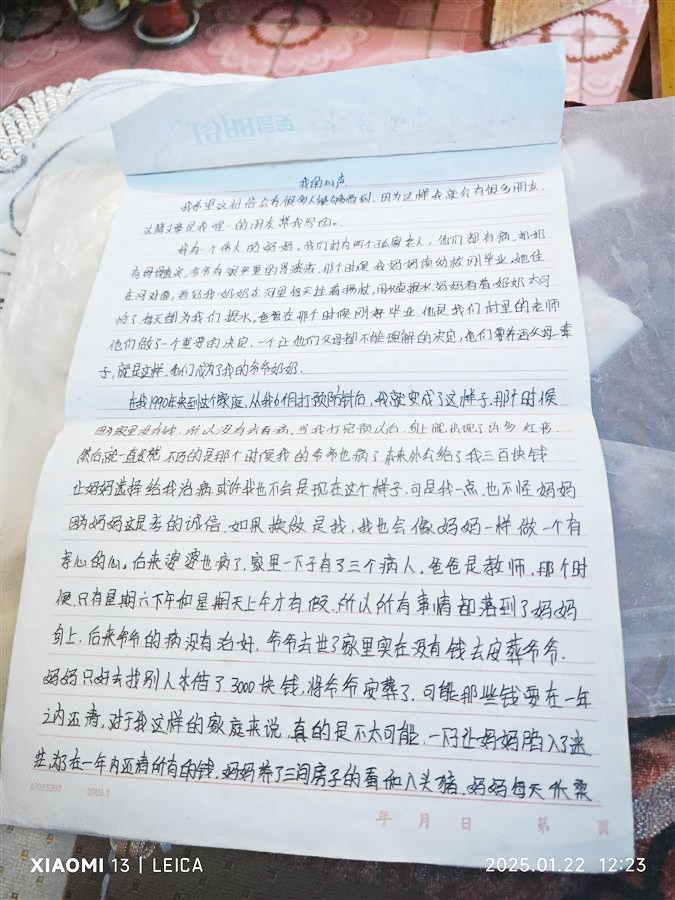 我的心声
我希望这封信会有很多人能够看到,因为这样我就会有很多朋友.
这篇文章是我唯一的朋友帮我写的。
我有一个伟大的妈妈,我们村有两个孤寡老人,他们都有病.奶奶
有 爷爷有很严重的胃溃疡.那个时候我妈妈读幼师刚毕业.她住
在河对面,看见我奶奶在河里每天拄着拐杖,用 提水妈妈看着奶奶太可
怜了,每天都为我们提水,爸爸在那个时候刚好毕业.他是我们村里的老师
他们做了一个重要的决定.一个让他们父母都不能理解的决定,他们要养活父母一辈
子,就是这样.他们成为了我的爷爷奶奶.
在我1990年来到这个家庭.从我6个月打预防针后,我就变成了这样子.那个时候
因为家里没有钱.所以没有去看病,当我打完预以后.身上就出现了许多红
然后就一直发烧.不巧的是那个时候我的爷爷也病了.本来外公给了我三百块钱
让妈妈选择给我治病或许我也不会是现在这个样子.可是我一点也不怪妈妈
因为妈妈这是孝的诚信.如果换做是我,我也会像妈妈一样做一个有
孝心的心。后来婆婆也病了.家里一下子有了三个病人.爸爸是教师.那个时
候.只有星期六下午和星期天上午才有假.所以所有事情都落到了妈妈
身上.后来爷爷的病没有治好.爷爷去世了家里实在没有钱去安葬爷爷.
妈妈只好去找别人来借了3000块钱,将爷爷安葬了.可能那些钱要在一年
之内还清,对于我这样的家庭来说.真的是不太可能.一下让妈妈陷入了迷
茫.为了在一年内还清所有的钱.妈妈养了三间房子的蚕和八头猪.妈妈每天
17015207 2003.7
年 月 日 第 页
XIAOMI 13 | LEICA
2025.01.22 12:23